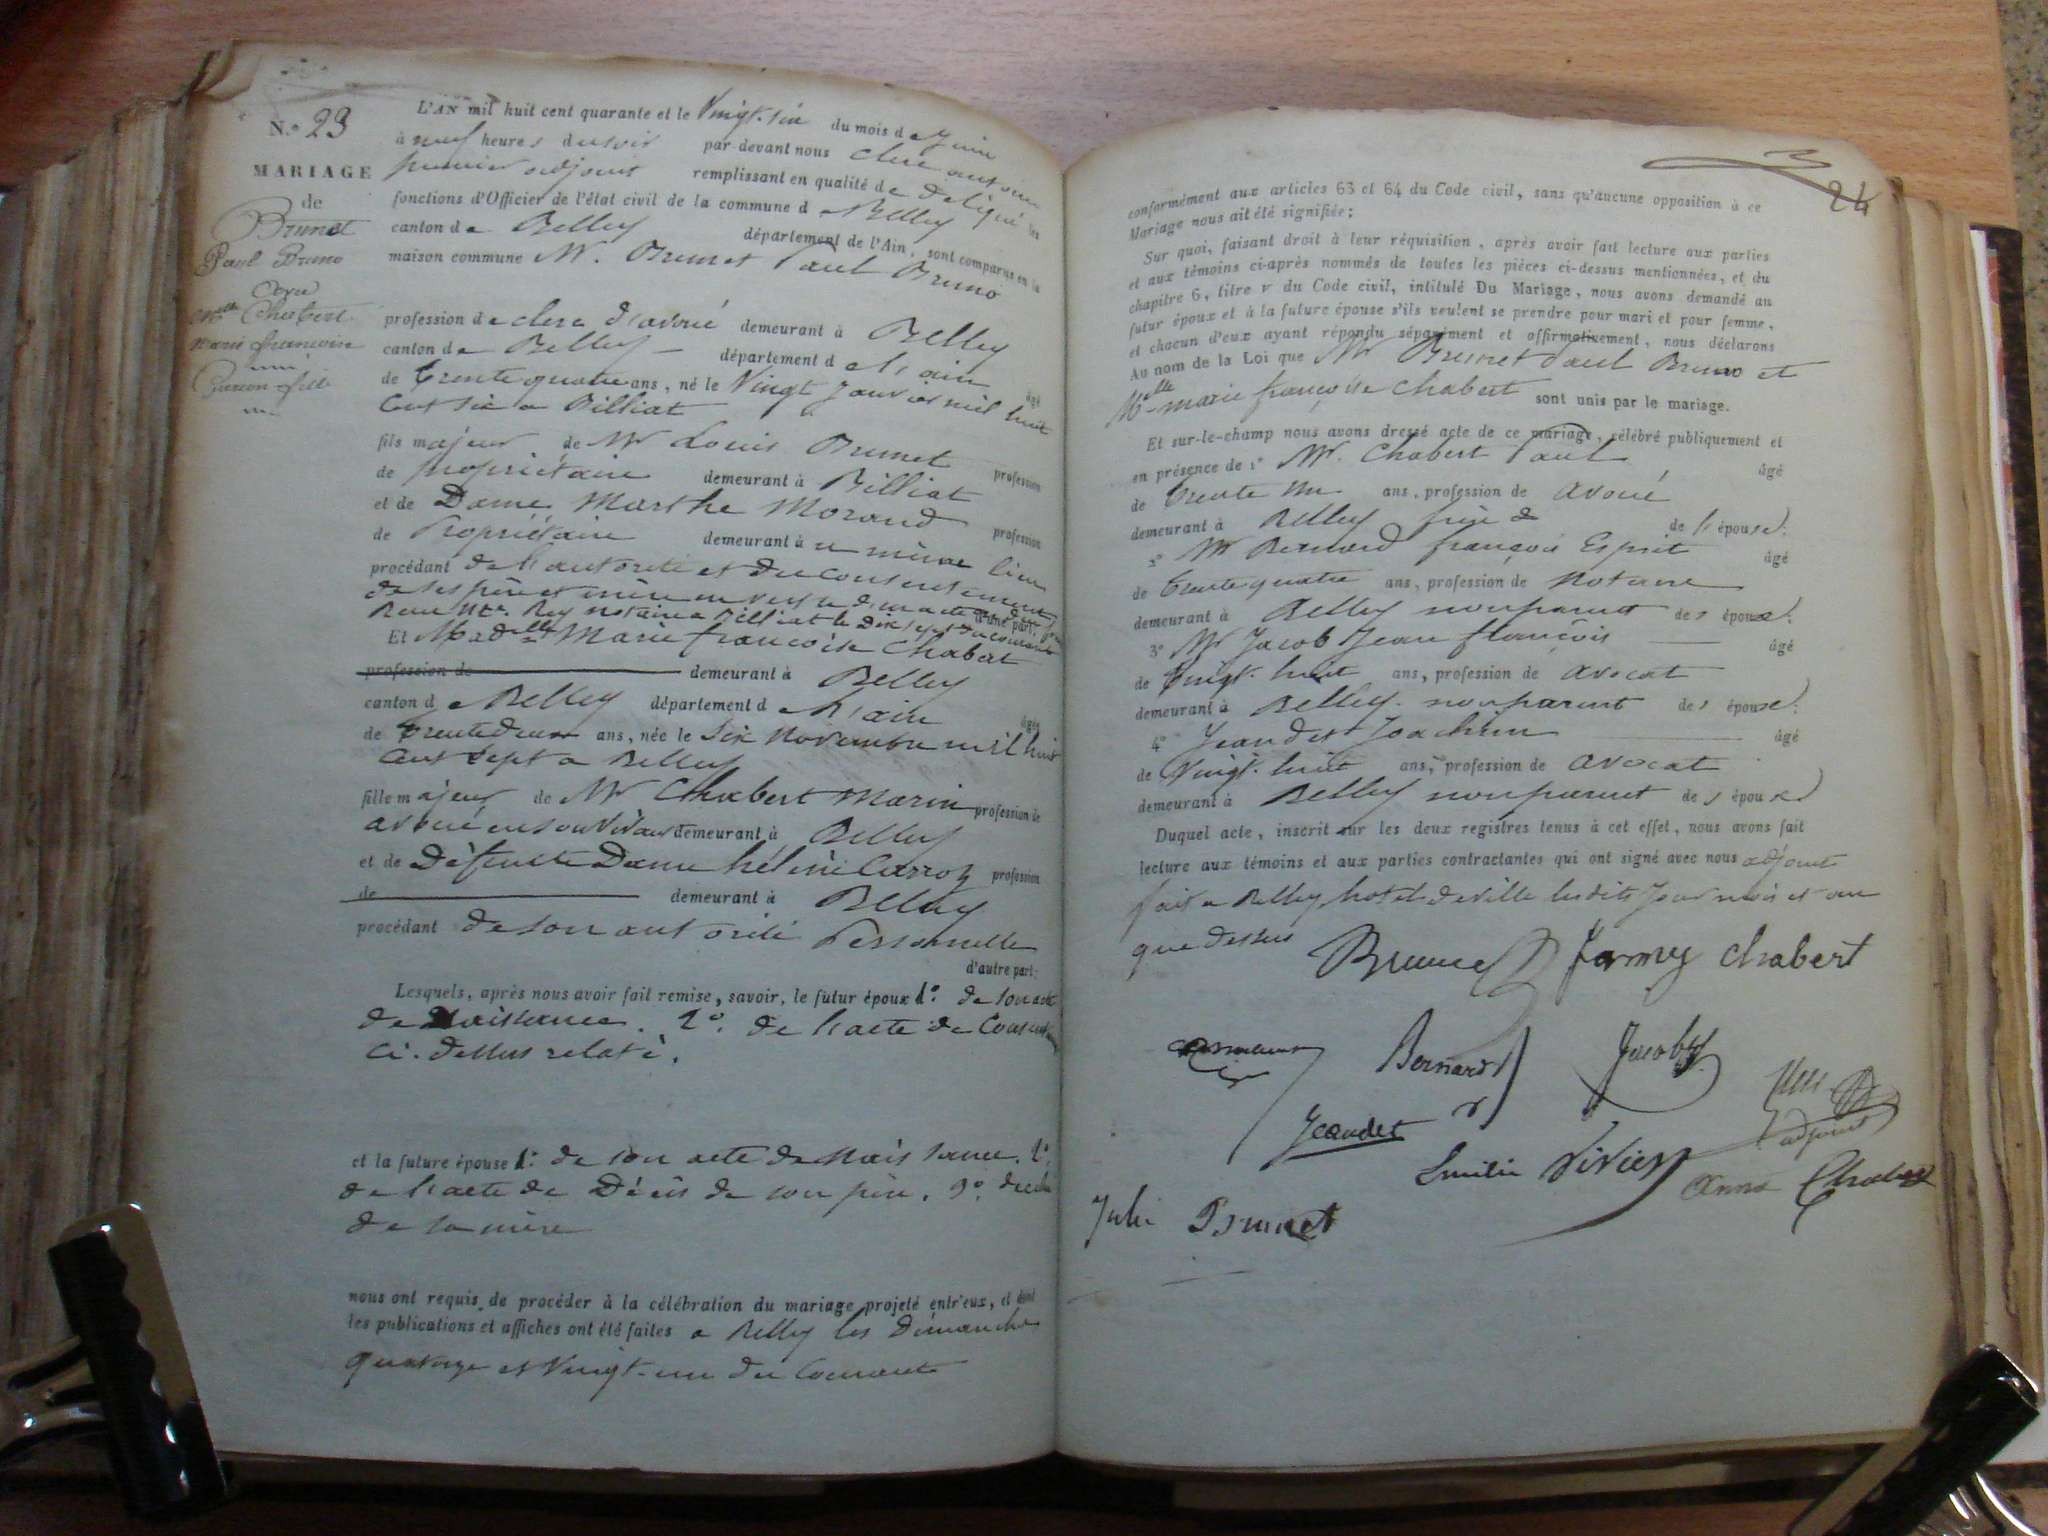 N.º 23
MARIAGE
de
Brunet
Paul Bruno
avec
Mlle Chabert
Marie françoise
L'AN mil huit cent quarante et le Vingt-six du mois de Juin
à neuf heures du soir par-devant nous
premier adjoint remplissant en qualité de délégué les
fonctions d'Officier de l'état civil de la commune d Belley
canton de Belley département de l'Ain, sont comparus en la
maison commune Mr. Brunet Paul Bruno
profession de clerc d'avoué demeurant à Belley
canton de Belley département de l'ain âgé
de Trente quatre ans, né le Vingt Janvier mil huit
Cent six a Billiat
fils majeur de Mr Louis Brunet profession
de propriétaire demeurant à Billiat
et de Dame Marthe Morand profession
de Propriétaire demeurant à u même lieu
procédant de l'autorité et du consentement
de ses père et mère en vertu d'un acte
Reçu Me. Rey notaire a Billiat le Dix sept du courant d'une part.
Et Madelle Marie françoise Chabert
profession de demeurant à Belley
canton de Belley département de l'ain âgée
de Trente deux ans, née le Six Novembre mil huit
Cent Sept a Belley
fille majeur de Mr Chabert Marin profession de
avoué en son vivant demeurant à Belley
et de Défunte Dame hélène Carroz profession
de demeurant à Belley
procédant de son autorité Personnelle
d'autre part;
Lesquels, après nous avoir fait remise, savoir, le futur époux 1.º de son acte
de Naissance. 2º. de l'acte de Consentement
Ci-dessus relaté.
et la future épouse 1.º de son acte de Naissance. 2º.
de l'acte de Décès de son père. 3º.
de sa mère
nous ont requis de procéder à la célébration du mariage projeté entr'eux, et dont
les publications et affiches ont été faites a Belley les Dimanche
quatorze et Vingt-un du Courant
24
conformément aux articles 63 et 64 du Code civil, sans qu'aucune opposition à ce
Mariage nous ait été signifiée;
Sur quoi, faisant droit à leur réquisition, après avoir fait lecture aux parties
et aux témoins ci-après nommés de toutes les pièces ci-dessus mentionnées, et du
chapitre 6, titre v du Code civil, intitulé Du Mariage, nous avons demandé au
futur époux et à la future épouse s'ils veulent se prendre pour mari et pour femme,
et chacun d'eux ayant répondu séparément et affirmativement, nous déclarons
Au nom de la Loi que Mr Brunet Paul Bruno et
Mlle marie françoise Chabert sont unis par le mariage.
Et sur-le-champ nous avons dressé acte de ce mariage, célébré publiquement et
en présence de 1º Mr. Chabert Paul âgé
de Trente un ans, profession de avoué
demeurant à Belley frère de l'épouse.
2º Mr Bernard françois Esprit âgé
de Trente quatre ans, profession de Notaire
demeurant à Belley non parent des époux.
3º Mr Jacob Jean françois âgé
de Vingt-huit ans, profession de avocat
demeurant à Belley. non parent des époux.
4º Jeandet Joachim âgé
de Vingt-huit ans, profession de avocat
demeurant à Belley non parent des époux
Duquel acte, inscrit sur les deux registres tenus à cet effet, nous avons fait
lecture aux témoins et aux parties contractantes qui ont signé avec nous adjoint
fait a Belley hotel de ville lesdits jour mois et an
que dessus
Brunet Fanny Chabert
Bernard Jacob
adjoint
Jeandet
Emilie Vivier Anna Chabert
Julie Brunet